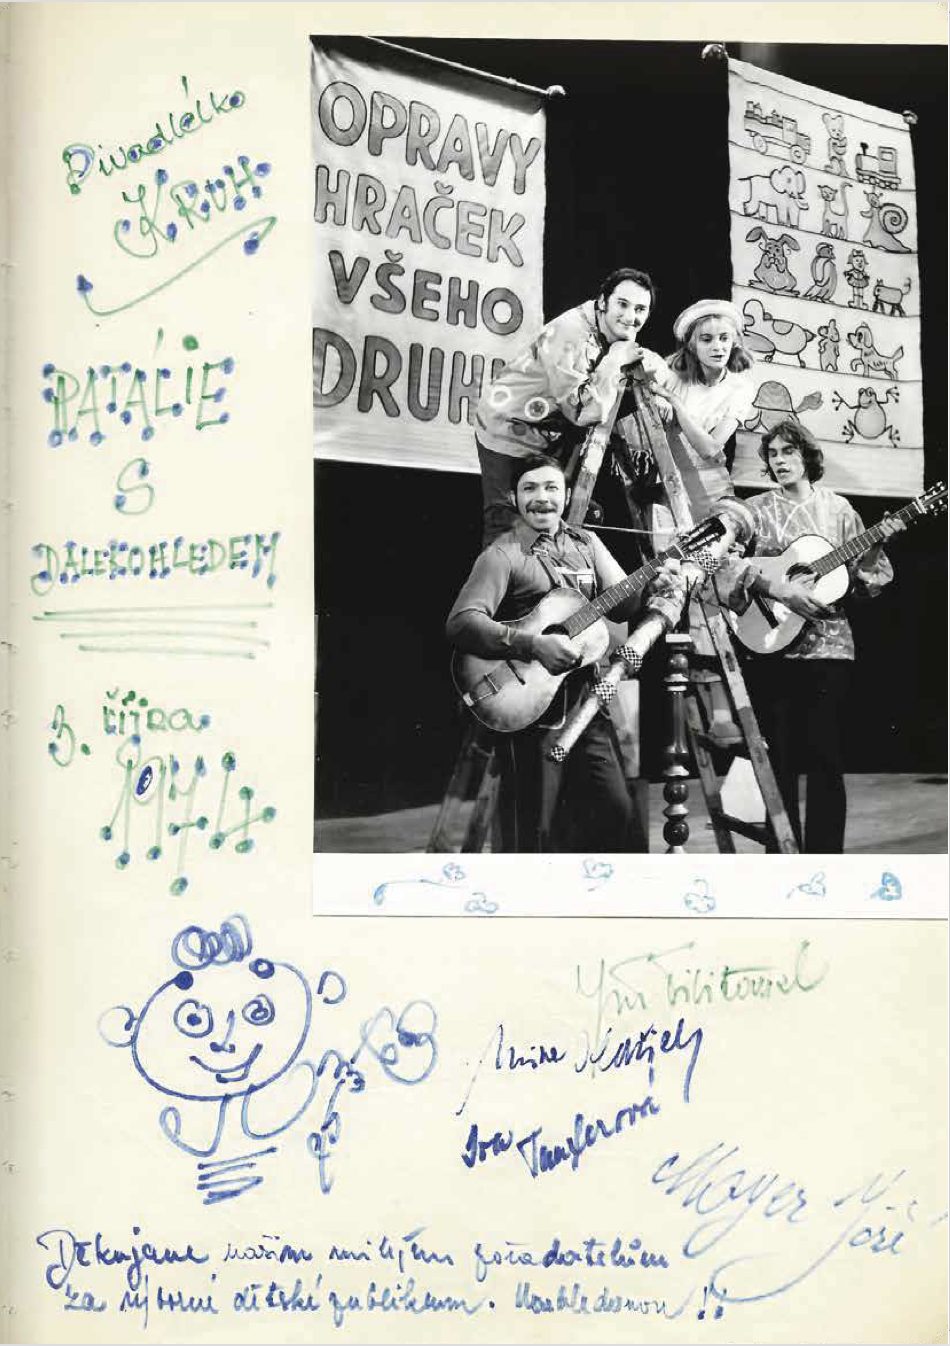 Divadélko
KRUH
PATÁLIE
S
DALEKOHLEDEM
3. října
1974
OPRAVY
HRAČEK
VŠEHO
DRUH
Jiří
Iva Tauferová
Mayer Jiří
Děkujeme našim milým pořadatelům
za výborné dětské publikum. Nashledanou !!